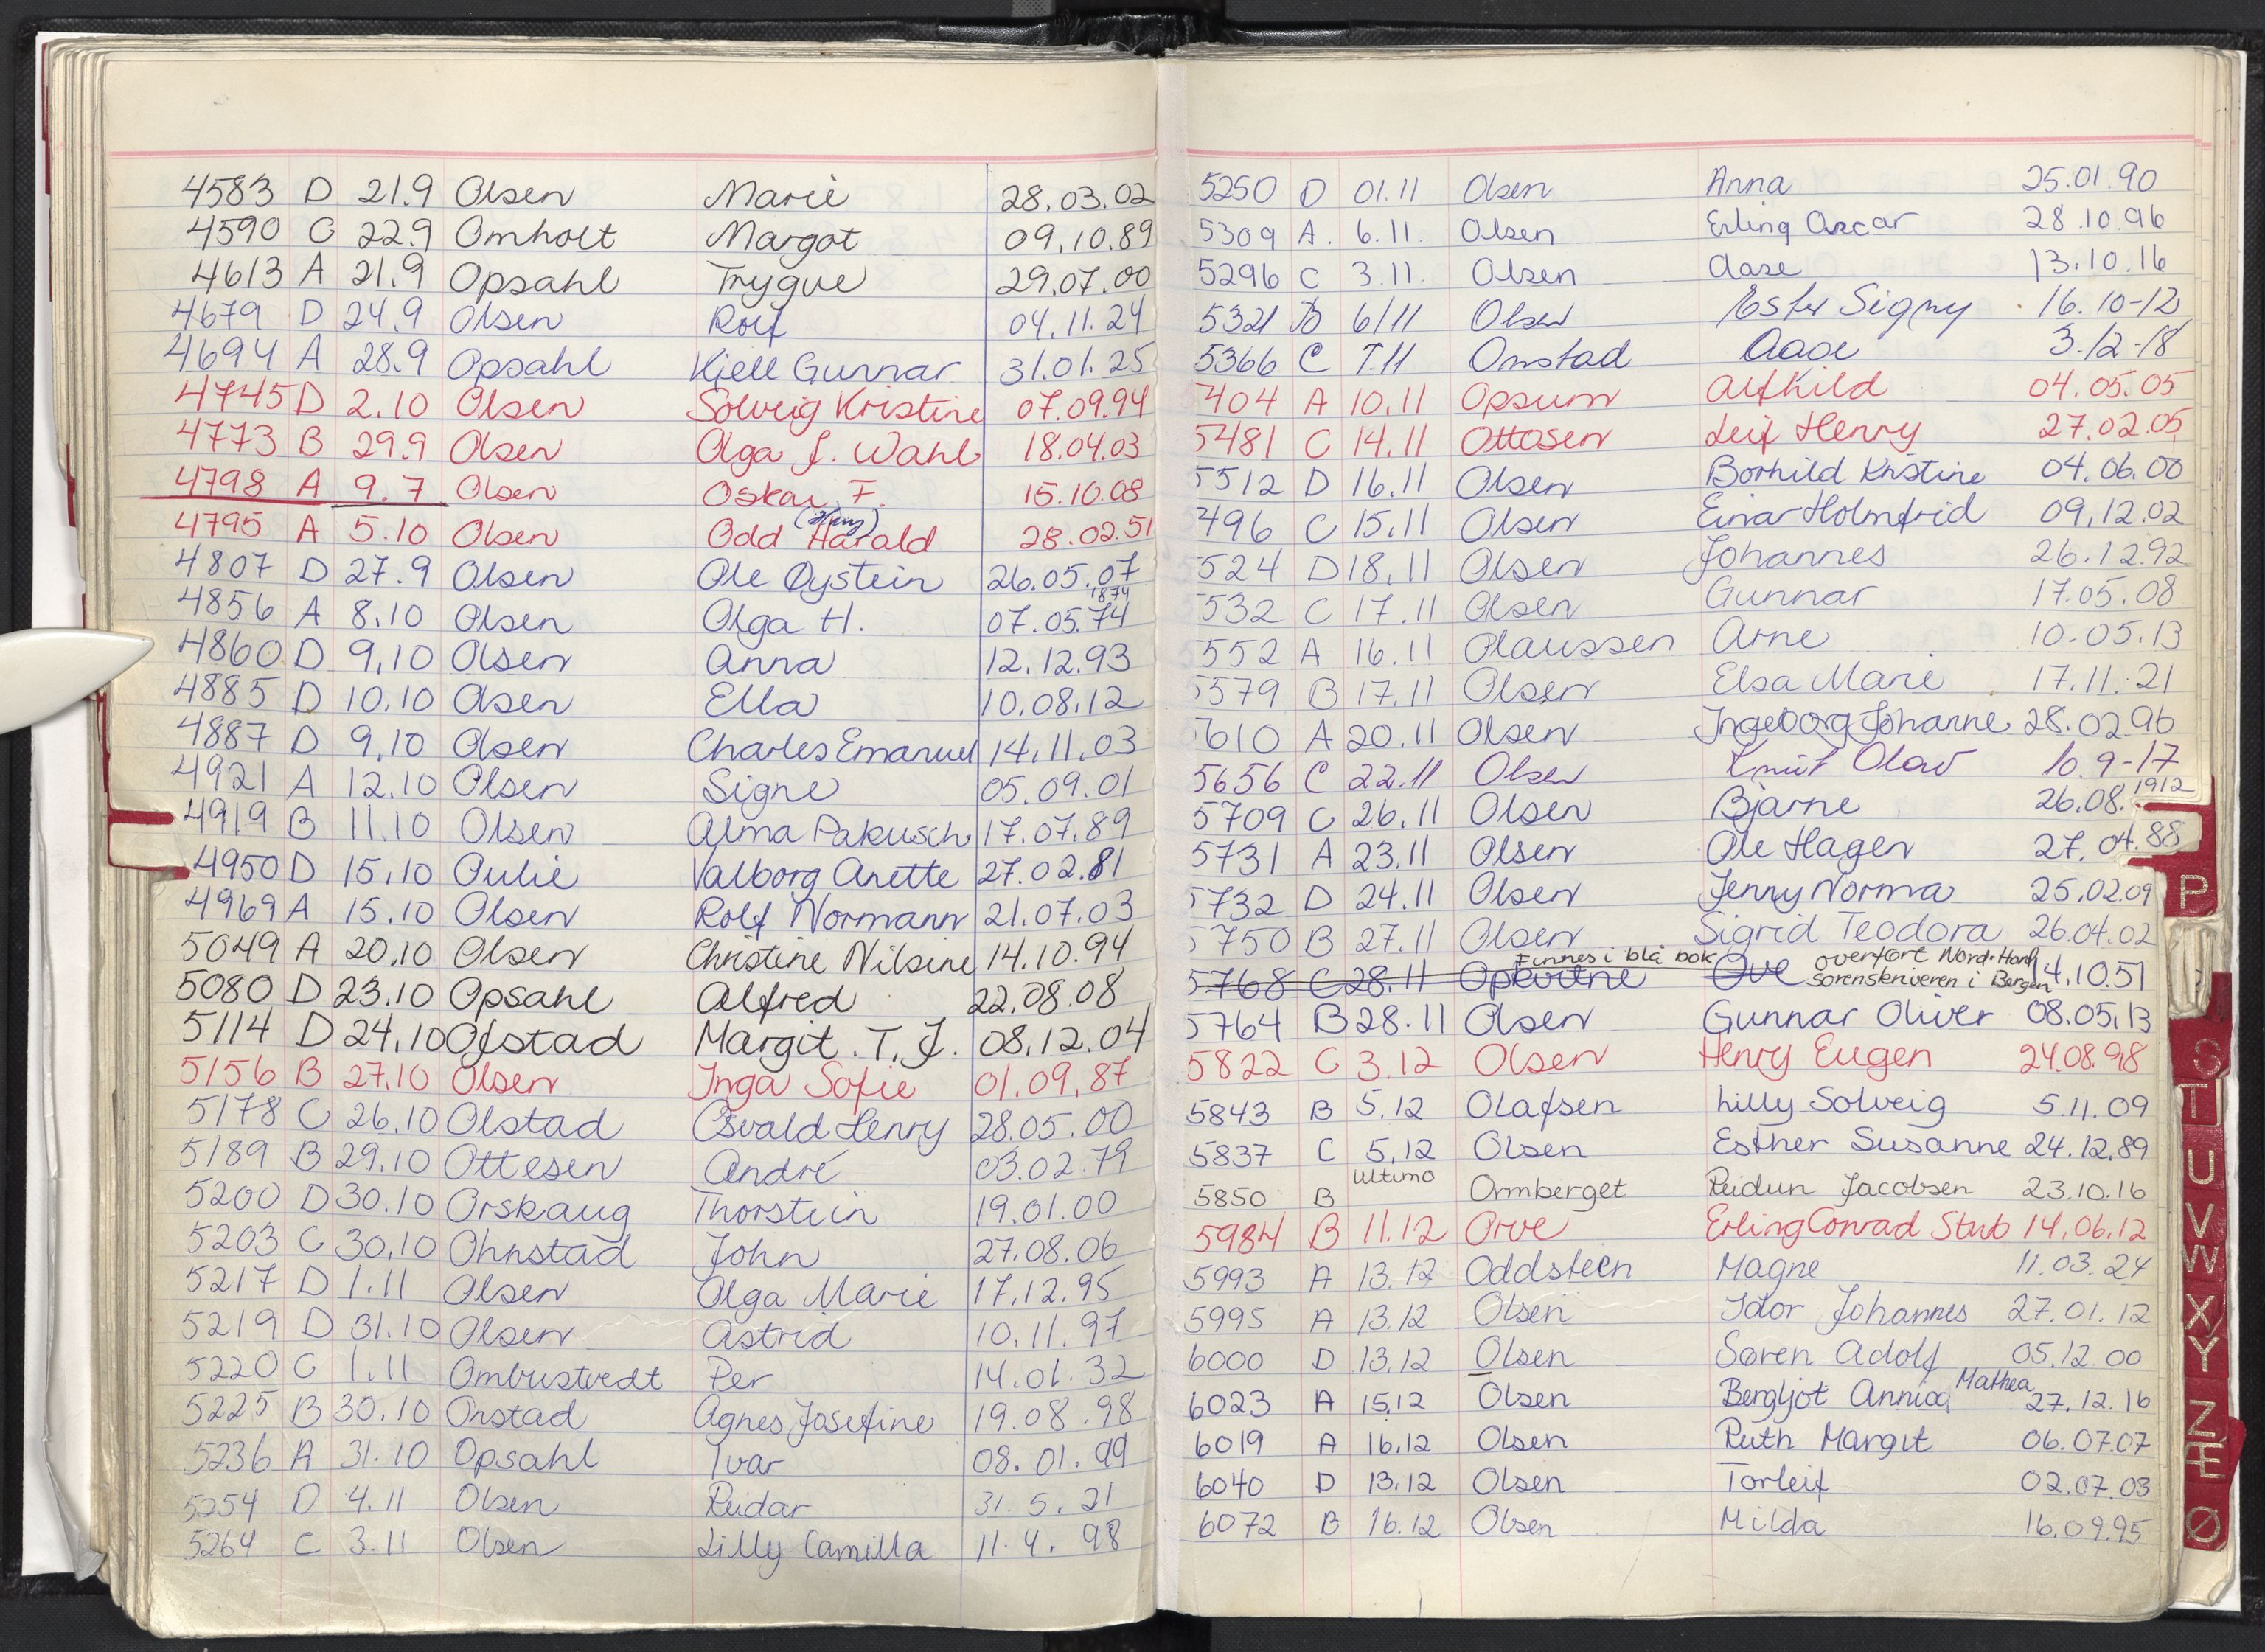 4583 D 21.9 Olsen Marie 28.03.02
4590 C 22.9 Omholt Margot 09.10.89
4613 A 21.9 Opsahl Trygve 29.07.00
4679 D 24.9 Olsen Rolf 04.11.24
4694 A 28.9 Opsahl Kjell Gunnar 31.01.25
4745 D 2.10 Olsen Solveig Kristine 07.09.94
4773 B 29.9 Olsen Olga J. Wahl 18.04.03
4798 A 9.7 Olsen Oskar F. 15.10.08
4795 A 5.10 Olsen Odd Harald 28.02.51
4807 D 27.9 Olsen Ole Øystein 26.05.07
1874
4856 A 8.10 Olsen Olga H. 07.05.74
4860 D 9.10 Olsen Anna 12.12.93
4885 D 10.10 Olsen Ella 10.08.12
4887 D 9.10 Olsen Charles Emanuel 14.11.03
4921 A 12.10 Olsen Signe 05.09.01
4919 B 11.10 Olsen Alma Pakusch 17.07.89
4950 D 15.10 Oulie Valborg Anette 27.02.81
4969 A 15.10 Olsen Rolf Normann 21.07.03
5049 A 20.10 Olsen Christine Nilsine 14.10.94
5080 D 23.10 Opsahl Alfred 22.08.08
5114 D 24.10 Ofstad Margit. T. J. 08.12.04
5156 B 27.10 Olsen Inga Sofie 01.09.87
5178 C 26.10 Olstad Osvald Henry 28.05.00
5189 B 29.10 Ottesen André 03.02.79
5200 D 30.10 Orskaug Thorstein 19.01.00
5203 C 30.10 Ohnstad John 27.08.06
5217 D 1.11 Olsen Olga Marie 17.12.95
5219 D 31.10 Olsen Astrid 10.11.97
5220 C 1.11 Ombustvedt Per 14.01.32
5225 B 30.10 Onstad Agnes Josefine 19.08.98
5236 A 31.10 Opsahl Ivar 08.01.99
5254 D 4.11 Olsen Reidar 31.5.21
5264 C 3.11 Olsen Lilly Camilla 11.4.98
5250 D 01.11 Olsen Anna 25.01.90
5309 A. 6.11. Olsen Erling Oscar 28.10.96
5296 C 3.11. Olsen Aase 13.10.16
5321 D 6/11 Olsen Ester Signy 16.10-12
5366 C 7.11 Omstad Aage 3.12-18
404 A 10.11 Opsum Alfhild 04.05.05
5481 C 14.11 Ottosen Leif Henry 27.02.05
5512 D 16.11 Olsen Borhild Kristine 04.06.00
496 C 15.11 Olsen Einar Holmfrid 09.12.02
524 D 18.11 Olsen Johannes 26.12.92
532 C 17.11 Olsen Gunnar 17.05.08
552 A 16.11 Olaussen Arne 10.05.13
5579 B 17.11 Olsen Elsa Marie 17.11.21
610 A 20.11 Olsen Ingeborg Johanne 28.02.96
5656 C 22.11 Olsen Knut Olav 10.9-17
5709 C 26.11 Olsen Bjarne 26.08.1912
5731 A 23.11 Olsen Ole Hagen 27.04.88
5732 D 24.11 Olsen Jenny Norma 25.02.09
5750 B 27.11 Olsen Sigrid Teodora 26.04.02
Finnes i blå bok overført Nord-Hord
5768 C 28.11 Ove sorenskriveren i Bergen 14.10.51
5764 B 28.11 Olsen Gunnar Oliver 08.05.13
5822 C 3.12 Olsen Henry Eugen 24.08.98
5843 B 5.12 Olafsen Lilly Solveig 5.11.09
5837 C 5.12 Olsen Esther Susanne 24.12.89
5850 B ultimo Ormberget Reidun Jacobsen 23.10.16
5984 B 11.12 Orve Erling Conrad Stub 14.06.12
5993 A 13.12 Oddsteen Magne 11.03.24
5995 A 13.12 Olsen Idor Johannes 27.01.12
6000 D 13.12 Olsen Søren Adolf 05.12.00
6023 A 15.12 Olsen Bergljot Annica Mathea 27.12.16
6019 A 16.12 Olsen Ruth Margit 06.07.07
6040 D 13.12 Olsen Torleif 02.07.03
6072 B 16.12 Olsen Milda 16.09.95
P
S
T
U
V
W
X
Y
Z
Æ
Ø